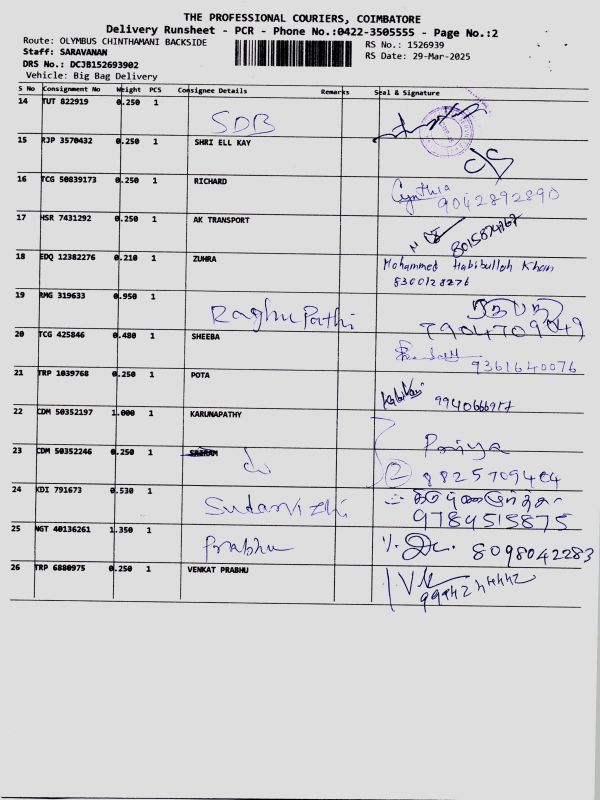 THE PROFESSIONAL COURIERS, COIMBATORE
Delivery Runsheet - PCR - Phone No.:0422-3505555 - Page No.:2
Route: OLYMBUS CHINTHAMANI BACKSIDE
RS No.: 1526939
Staff: SARAVANAN
RS Date: 29-Mar-2025
DRS No.: DCJB152693902
Vehicle: Big Bag Delivery
S No Consignment No Weight PCS Consignee Details Remarks Seal & Signature
14 TUT 822919 0.250 1 SDB
15 RJP 3570432 0.250 1 SHRI ELL KAY
16 TCG 50839173 0.250 1 RICHARD Cynthia 9042892890
17 HSR 7431292 0.250 1 AK TRANSPORT
18 EDQ 12382276 0.210 1 ZUHRA Mohammed Habibullah Khan
8300128276
19 RMG 319633 0.950 1 Raghupathi
7904709049
20 TCG 425846 0.480 1 SHEEBA 9361640076
21 TRP 1039768 0.250 1 POTA
22 CDM 50352197 1.000 1 KARUNAPATHY Priya
23 CDM 50352246 0.250 1 2
24 KDI 791673 0.530 1 Sudarvizhi
9789515875
25 NGT 40136261 1.350 1 Prabhu 8098042283
26 TRP 6880975 0.250 1 VENKAT PRABHU